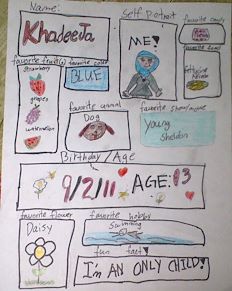 Name:
Khadeeja
Self Portrait
ME!
favorite candy
favorite food
favorite fruit(s)
strawberry
grapes
watermelon
favorite color
BLUE
favorite animal
Dog
favorite show/movie
Young
Sheldon
Birthday / Age
9/2/11
AGE: 13
favorite flower
Daisy
favorite hobby
Swimming
fun fact
I'm AN ONLY CHILD!